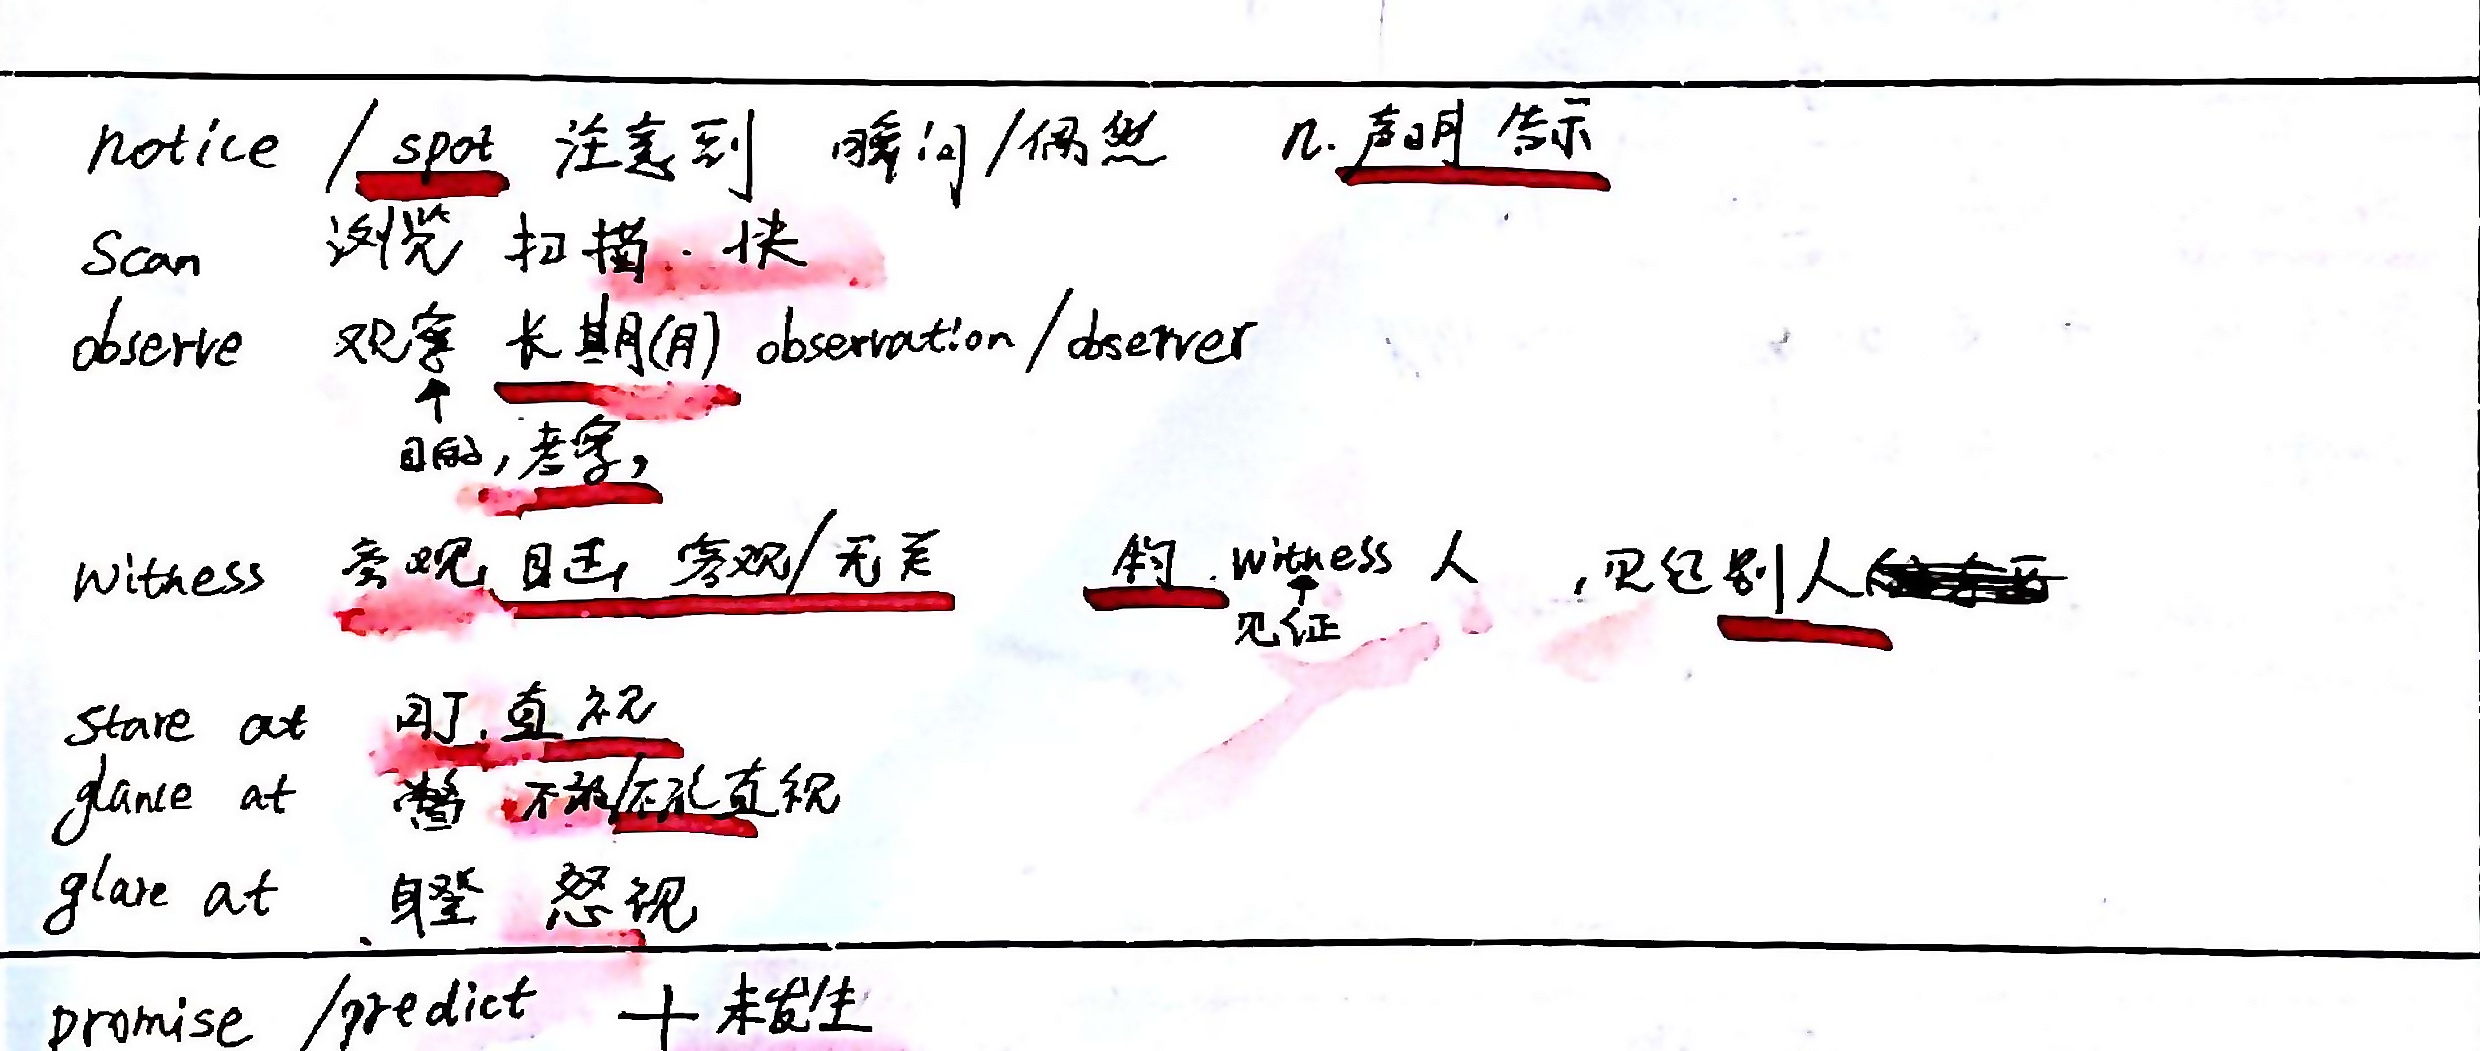 notice / spot 注意到 瞬间/偶然 n. 声明 告示
Scan 浏览 扫描. 快
observe 观察 长期(月) observation/observer
↑
目的, 考察,
Witness 旁观 目击 客观/无关 的. witness 人 , 见证别人
↑
见证
stare at 盯. 直视
glance at 瞥 不敢/不能直视
glare at 瞪 怒视
promise /predict + 未发生